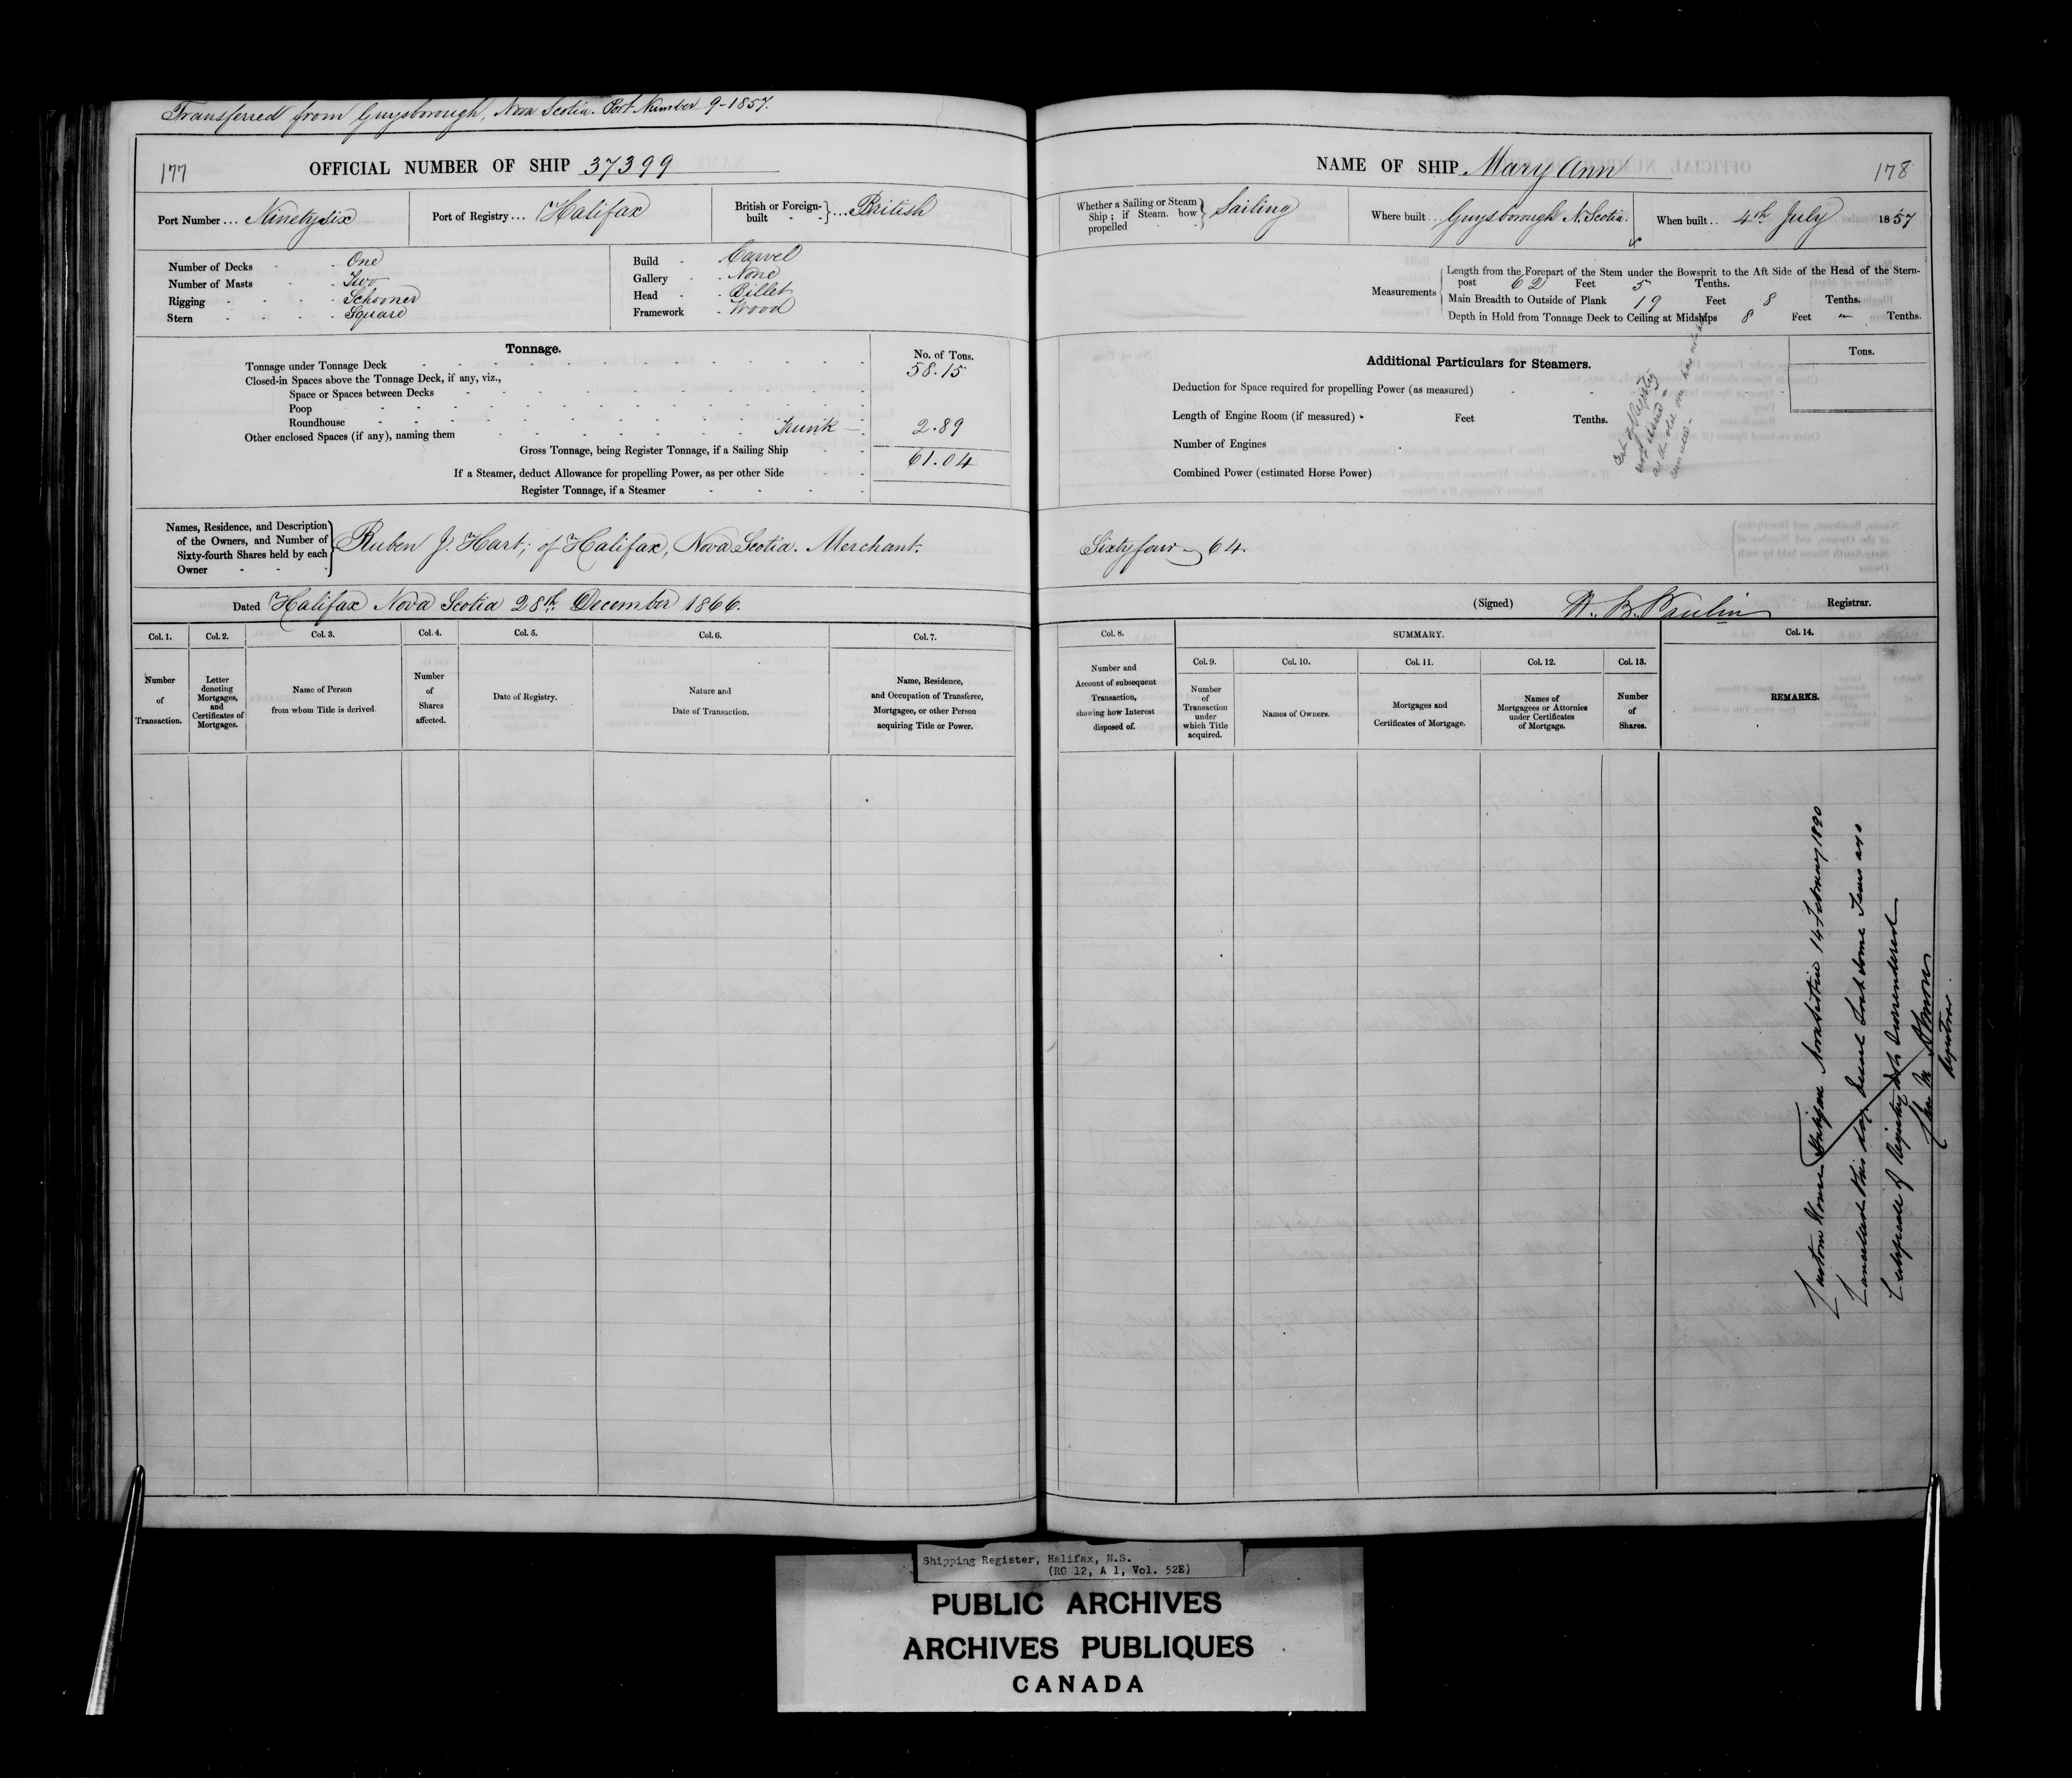 Transferred from Guysborough, Nova Scotia. Port Number 9-1857.
177
OFFICIAL NUMBER OF SHIP 37399
Port Number ... Ninety Six
Port of Registry ... Halifax
British or Foreign-built ... British
Number of Decks - One
Number of Masts - Two
Rigging - Schooner
Stern - Square
Build - Carvel
Gallery - None
Head - Billet
Framework - Wood
Tonnage.
No. of Tons.
Tonnage under Tonnage Deck 58.15
Closed-in Spaces above the Tonnage Deck, if any, viz.,
Space or Spaces between Decks
Poop
Roundhouse
Other enclosed Spaces (if any), naming them Trunk 2.89
Gross Tonnage, being Register Tonnage, if a Sailing Ship 61.04
If a Steamer, deduct Allowance for propelling Power, as per other Side
Register Tonnage, if a Steamer
Names, Residence, and Description of the Owners, and Number of Sixty-fourth Shares held by each Owner
Ruben J. Hart; of Halifax, Nova Scotia. Merchant.
Dated Halifax Nova Scotia 28th December 1866.
Col. 1. Col. 2. Col. 3. Col. 4. Col. 5. Col. 6. Col. 7.
Number of Transaction.
Letter denoting Mortgages, and Certificates of Mortgages.
Name of Person from whom Title is derived.
Number of Shares affected.
Date of Registry.
Nature and Date of Transaction.
Name, Residence, and Occupation of Transferee, Mortgagee, or other Person acquiring Title or Power.
NAME OF SHIP Mary Ann
178
Whether a Sailing or Steam Ship; if Steam, how propelled
Sailing
Where built .. Guysborough N. Scotia.
When built .. 4th July 1857
Measurements
Length from the Forepart of the Stem under the Bowsprit to the Aft Side of the Head of the Stern-
post 62 Feet 5 Tenths.
Main Breadth to Outside of Plank 19 Feet 8 Tenths.
Depth in Hold from Tonnage Deck to Ceiling at Midships 8 Feet " Tenths.
Additional Particulars for Steamers.
Tons.
Deduction for Space required for propelling Power (as measured)
Length of Engine Room (if measured) Feet Tenths.
Number of Engines
Combined Power (estimated Horse Power)
Cert of Registry
not issued
as the old one has not been
Sixty four 64.
(Signed) Registrar.
Col. 8. SUMMARY. Col. 14.
Col. 9. Col. 10. Col. 11. Col. 12. Col. 13.
Number and Account of subsequent Transaction, showing how Interest disposed of.
Number of Transaction under which Title acquired.
Names of Owners.
Mortgages and Certificates of Mortgage.
Names of Mortgagees or Attornies under Certificates of Mortgage.
Number of Shares.
REMARKS.
Custom House Halifax Nova Scotia 14 February 1890
Cancelled this day. Vessel Lost some Years ago
Certificate of Registry not Surrendered
Registrar.
Shipping Register, Halifax, N.S.
(RG 12, A 1, Vol. 52E)
PUBLIC ARCHIVES
ARCHIVES PUBLIQUES
CANADA